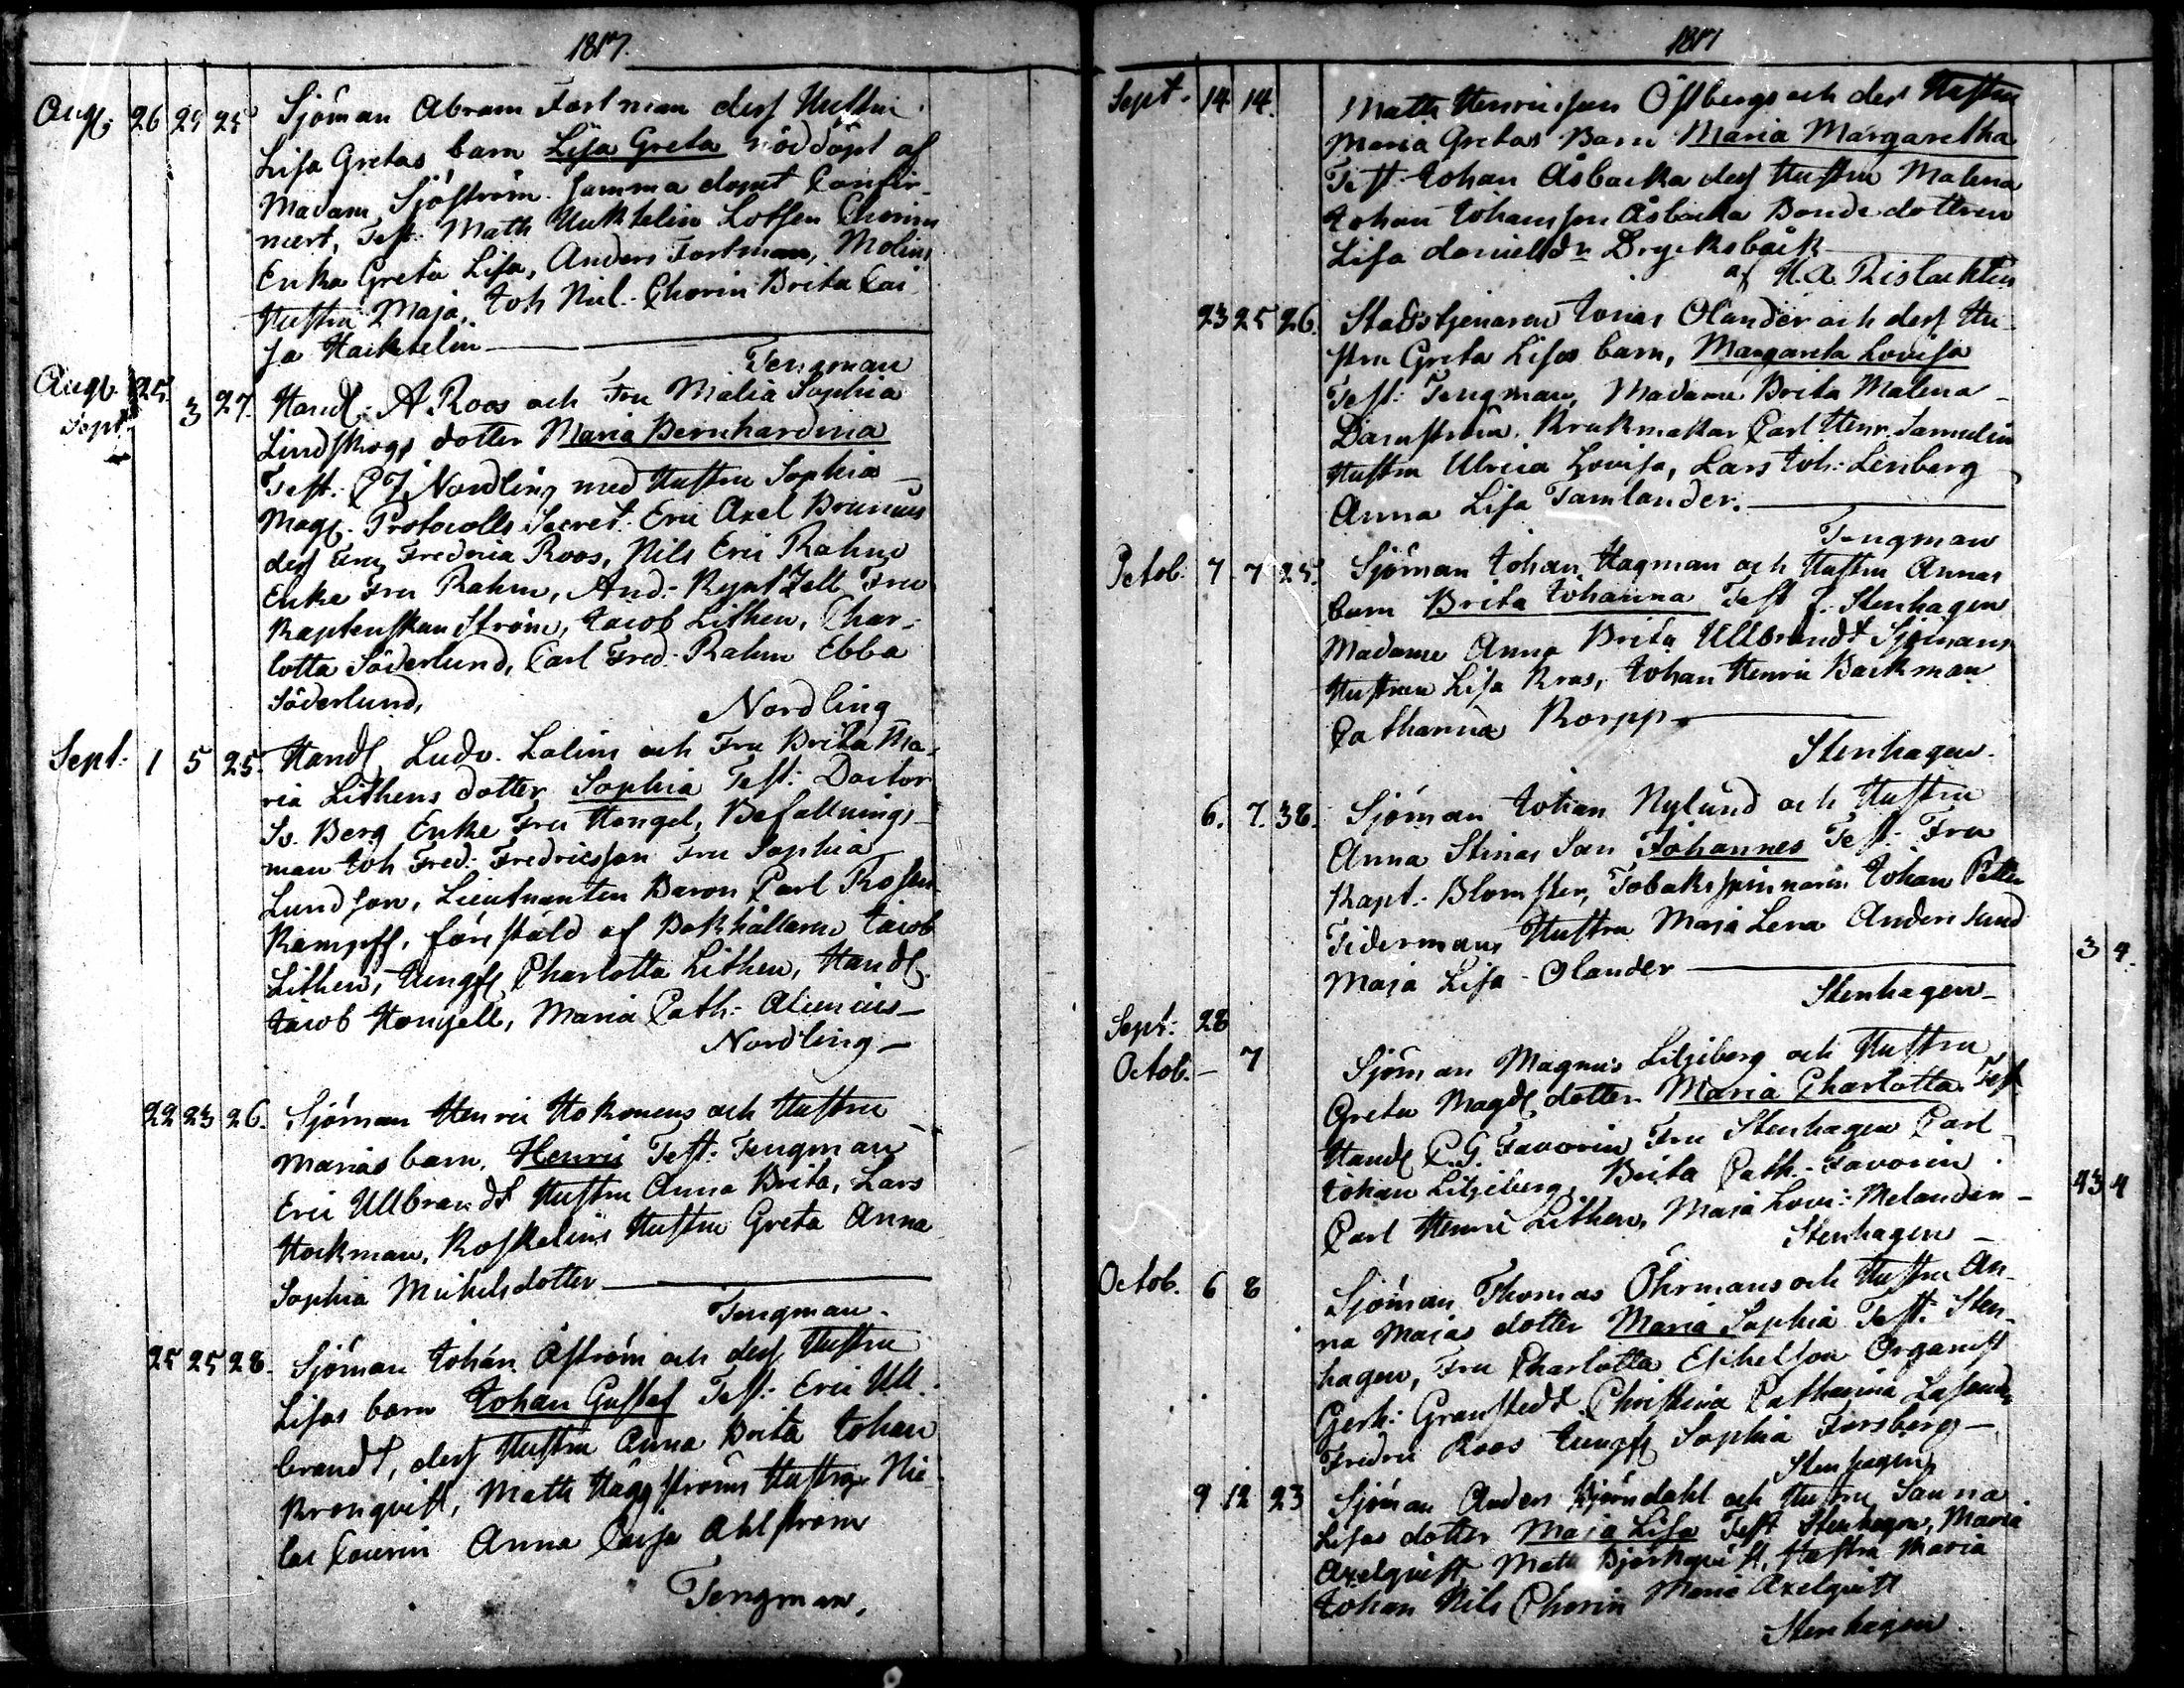 1817.
Aug. 26 29 25 Sjöman Abram Fortman dess Hustru
Lisa Gretas barn Lisa Greta nöddöpt af
Madam Sjöström samma dopet Confir-
mert, Test. Math Lotsen Chorins
Enka Greta Lisa, Anders Fortman, Molins
Hustru Maja, Joh Nic. Chorin Brita Cai
sa
Tengman
Aug. 25.
Sept. 3 27. Handl. A Roos och Fru Malia Sophia
Lindskogs dotter Maria Bernhardina
Test: C J Nordling med Hustru Sophia
Mag. Protocolls Secret. Eric Axel Brunnus
dess Fru Fredrica Roos, Nils Eric Rahm
Enka Fru Rahm, And. Fru
Kaptenskan Ström, Jacob Lithen, Char-
lotta Söderlund, Carl Fred. Rahm Ebba
Söderlund,
Nordling
Sept. 1 5 25. Handl Ludv. Lalins och Fru Brita Ma-
ria Lithens dotter Sophia Test: Doctor
Berg Enke Fru Hongel, Befallnings-
man Joh Fred. Fredricsson Fru Sophia
Lundson, Lieutnanten Baron Carl Rosen
Kampff, föreställd af Bokhållaren Jacob
Lithen, Jungf Charlotta Lithen, Handl.
Jacob Hongell, Maria Cath. Alcenius
Nordling
22 23 26. Sjöman Henric Hokonens och Hustru
Marias barn, Henric Test: Tengman
Eric Ullbrandt Hustru Anna Brita, Lars
Hockman, Koskelins Hustru Greta Anna
Sophia Michelsdotter
Tengman.
25 25 28. Sjöman Johan Åström och dess Hustru
Lisas barn Johan Gustaf Test: Eric Ull-
brandt, dess Hustru Anna Brita Johan
Kronqvist, Math Häggströms Hustru Nic-
las Caurin Anna Caisa Ahlström
Tengman,
1817
Sept. 14. 14. Math Henricsson Östbergs och dess Hustru
Maria Gretas Barn Maria Margaretha
Test. Johan Åsbacka dess Hustru Malena
Johan Johansson Åsbacka Bonde dottren
Lisa danielsdr Drycksbäck
af H. A. Rislachtin
23 25 26. Stadstjenaren Jonas Olander och dess Hu-
stru Greta Lisas barn, Margareta Lovisa
Test: Tengman, Madame Brita Malena
Damström. Krukmakar Carl Henr. Samuelin
Hustru Ulrica Lovisa, Lars Joh: Lenberg
Anna Lisa Tamlander.
Tengman
Octob. 7 7 25. Sjöman Johan Hagman och Hustru Annas
barn Brita Johanna Test J. Stenhagen
Madame Anna Brita Ullbrandt Sjömans
Hustrun Lisa Kras, Johan Henric Backman
Catharina Korpp
Stenhagen.
6. 7. 38. Sjöman Johan Nylund och Hustru
Anna Stinas Son Johannes Test: Fru
Kapt. Blomster, Tobaks spinnaren Johan Petter
Tidermans Hustru Maja Lena Anders Sund
Maja Lisa Olander 3 4.
Stenhagen
Sept: 28
Octob. - 7 Sjöman Magnus Liljeberg och Hustru
Greta Magd dotter Maria Charlotta Test
Handl C. G. Favorin Fru Stenhagen Carl
Johan Liljeberg, Brita Cath. Favorin
Carl Henric Lithen, Maja Lovi: Melander 43 4
Stenhagen
Octob. 6 8 Sjöman Thomas Öhrmans och Hustru An-
na Majas dotter Maria Sophia Test: Sten-
hagen, Fru Charlotta Eschelson Organist
Gerh: Granstedt Christina Catharina
Fredric Roos Jungf Sophia Forsberg
Stenhagen
9 12 23 Sjöman Anders Björndahl och Hustru Sanna
Lisas dotter Maja Lisa Test Stenhagen, Maria
Axelqvist, Math Björkqvist, Hustru Maria
Johan Nils Chorin Maria Axelqvist
Stenhagen